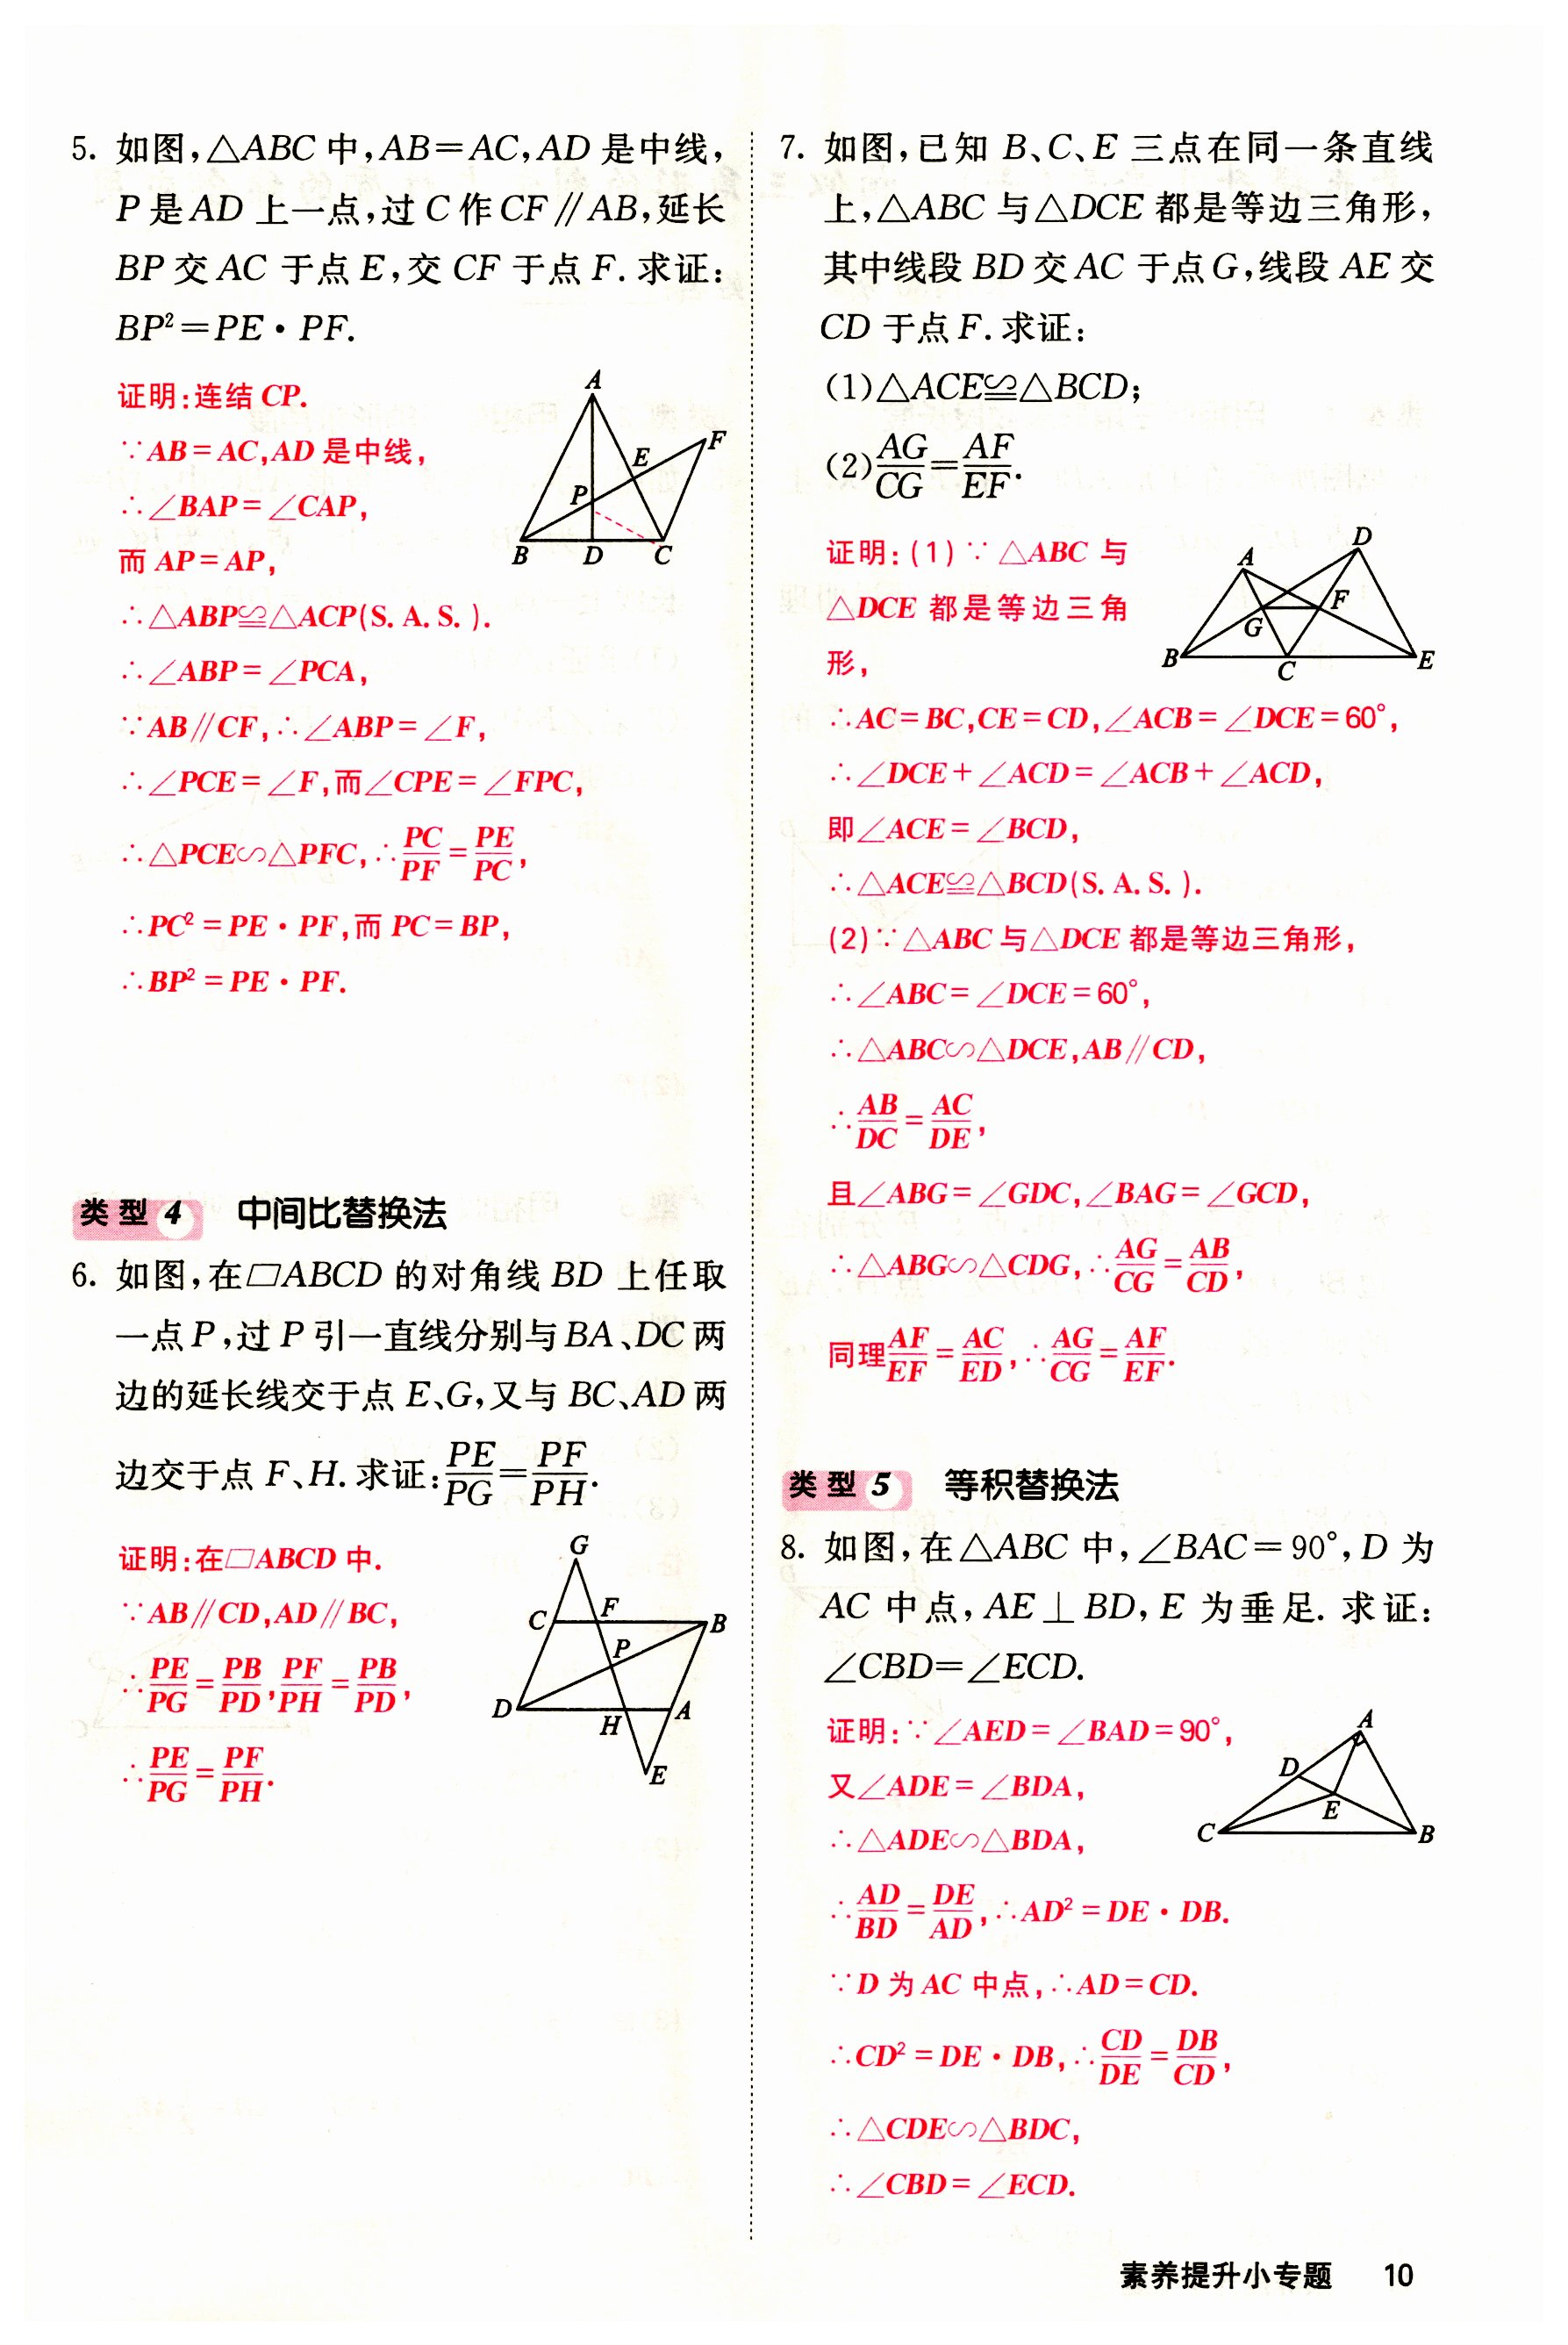 5. 如图,△ABC 中,AB=AC,AD 是中线,
P 是 AD 上一点,过 C 作 CF∥AB,延长
BP 交 AC 于点 E,交 CF 于点 F. 求证:
BP²=PE·PF.
证明:连结 CP.
∵AB=AC,AD 是中线,
∴∠BAP=∠CAP,
而 AP=AP,
∴△ABP≌△ACP(S. A. S. ).
∴∠ABP=∠PCA,
∵AB∥CF,∴∠ABP=∠F,
∴∠PCE=∠F,而∠CPE=∠FPC,
∴△PCE∽△PFC,∴PC/PF=PE/PC,
∴PC²=PE·PF,而 PC=BP,
∴BP²=PE·PF.
A
F
E
P
B
D
C
类型 4 中间比替换法
6. 如图,在▱ABCD 的对角线 BD 上任取
一点 P,过 P 引一直线分别与 BA、DC 两
边的延长线交于点 E、G,又与 BC、AD 两
边交于点 F、H. 求证:PE/PG=PF/PH.
证明:在▱ABCD 中.
∵AB∥CD,AD∥BC,
∴PE/PG=PB/PD,PF/PH=PB/PD,
∴PE/PG=PF/PH.
G
C
F
B
P
D
H
A
E
7. 如图,已知 B、C、E 三点在同一条直线
上,△ABC 与△DCE 都是等边三角形,
其中线段 BD 交 AC 于点 G,线段 AE 交
CD 于点 F. 求证:
(1)△ACE≌△BCD;
(2)AG/CG=AF/EF.
证明:(1)∵△ABC 与
△DCE 都是等边三角
形,
∴AC=BC,CE=CD,∠ACB=∠DCE=60°,
∴∠DCE+∠ACD=∠ACB+∠ACD,
即∠ACE=∠BCD,
∴△ACE≌△BCD(S. A. S. ).
(2)∵△ABC 与△DCE 都是等边三角形,
∴∠ABC=∠DCE=60°,
∴△ABC∽△DCE,AB∥CD,
∴AB/DC=AC/DE,
且∠ABG=∠GDC,∠BAG=∠GCD,
∴△ABG∽△CDG,∴AG/CG=AB/CD,
同理AF/EF=AC/ED,∴AG/CG=AF/EF.
D
A
F
G
B
C
E
类型 5 等积替换法
8. 如图,在△ABC 中,∠BAC=90°,D 为
AC 中点,AE⊥BD,E 为垂足. 求证:
∠CBD=∠ECD.
证明:∵∠AED=∠BAD=90°,
又∠ADE=∠BDA,
∴△ADE∽△BDA,
∴AD/BD=DE/AD,∴AD²=DE·DB.
∵D 为 AC 中点,∴AD=CD.
∴CD²=DE·DB,∴CD/DE=DB/CD,
∴△CDE∽△BDC,
∴∠CBD=∠ECD.
A
D
E
C
B
素养提升小专题 10